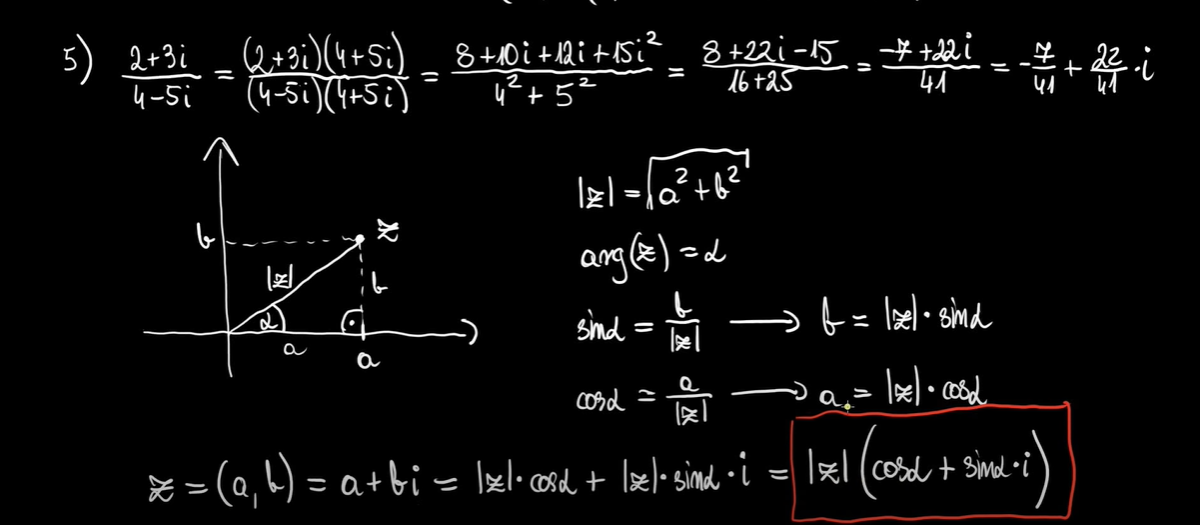 5) (2+3i)/(4-5i) = ((2+3i)(4+5i))/((4-5i)(4+5i)) = (8+10i+12i+15i²)/(4²+5²) = (8+22i-15)/(16+25) = (-7+22i)/41 = -7/41 + 22/41·i
b z
|z| b
α a a
|z| = √(a²+b²)
arg(z) = α
sinα = b/|z| ⟶ b = |z|·sinα
cosα = a/|z| ⟶ a = |z|·cosα
z = (a,b) = a+bi = |z|·cosα + |z|·sinα·i = |z|(cosα + sinα·i)